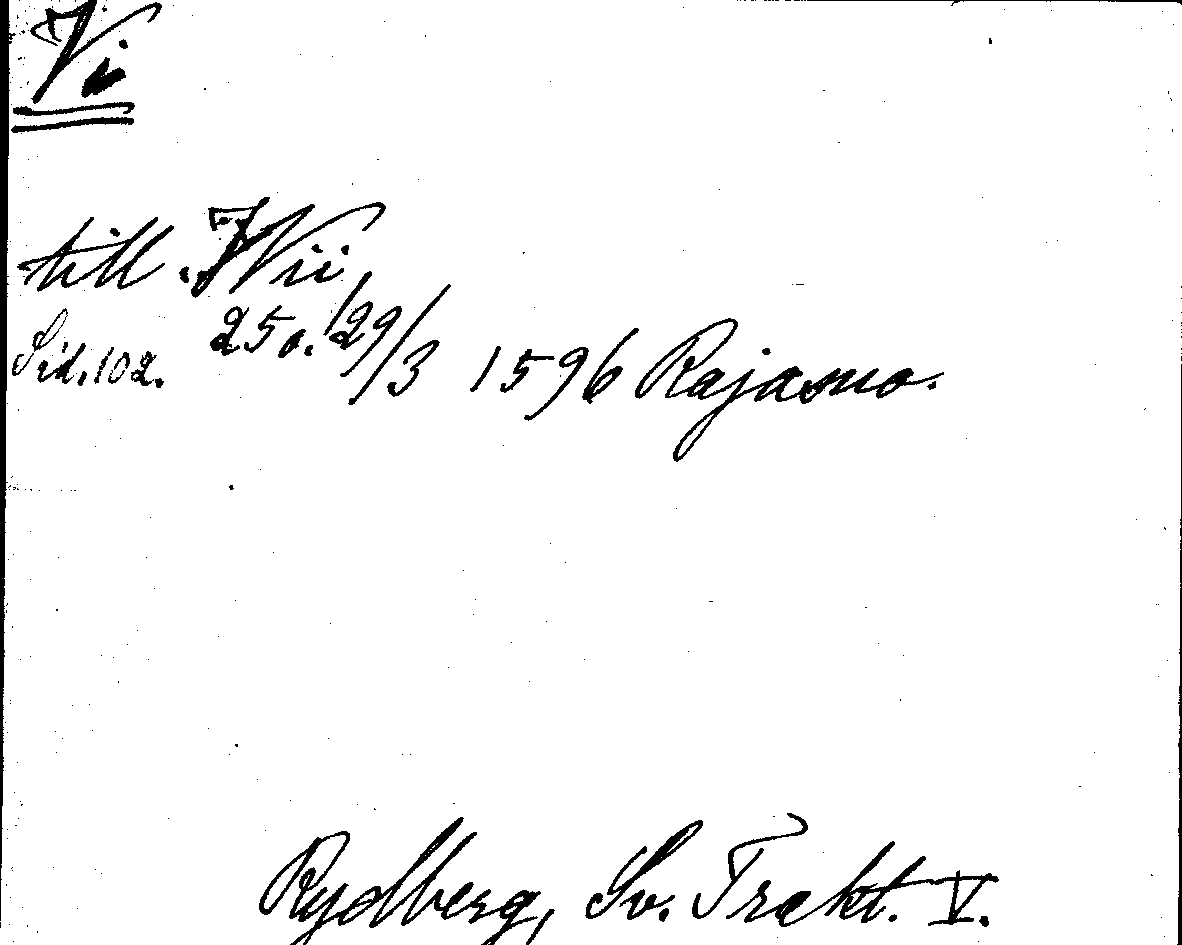 Vi
till Wii
Sid. 102. 25 o. 29/3 1596 Rajasuo.
Rydberg, Sv. Trakt. V.